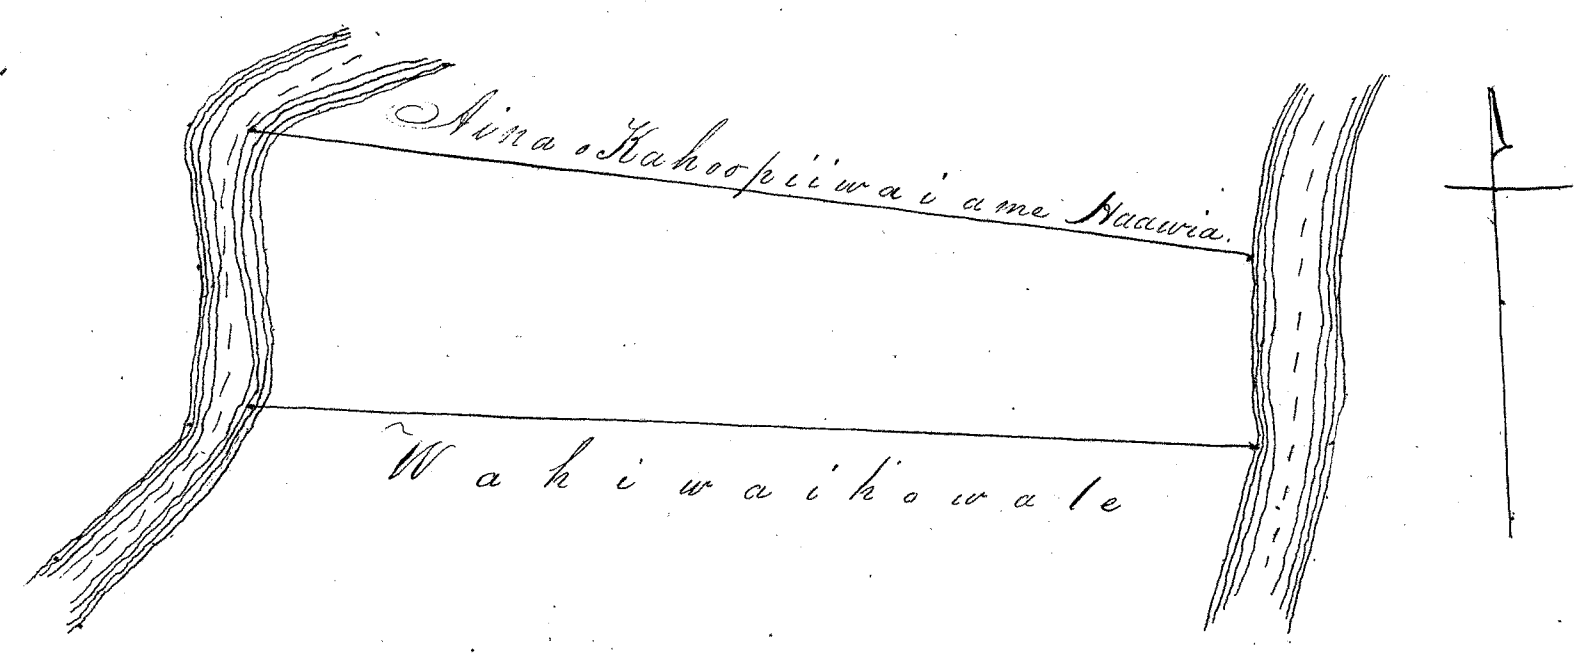 Aina o Kahoopiiwai a me Haawia.
Wahiwaikowale